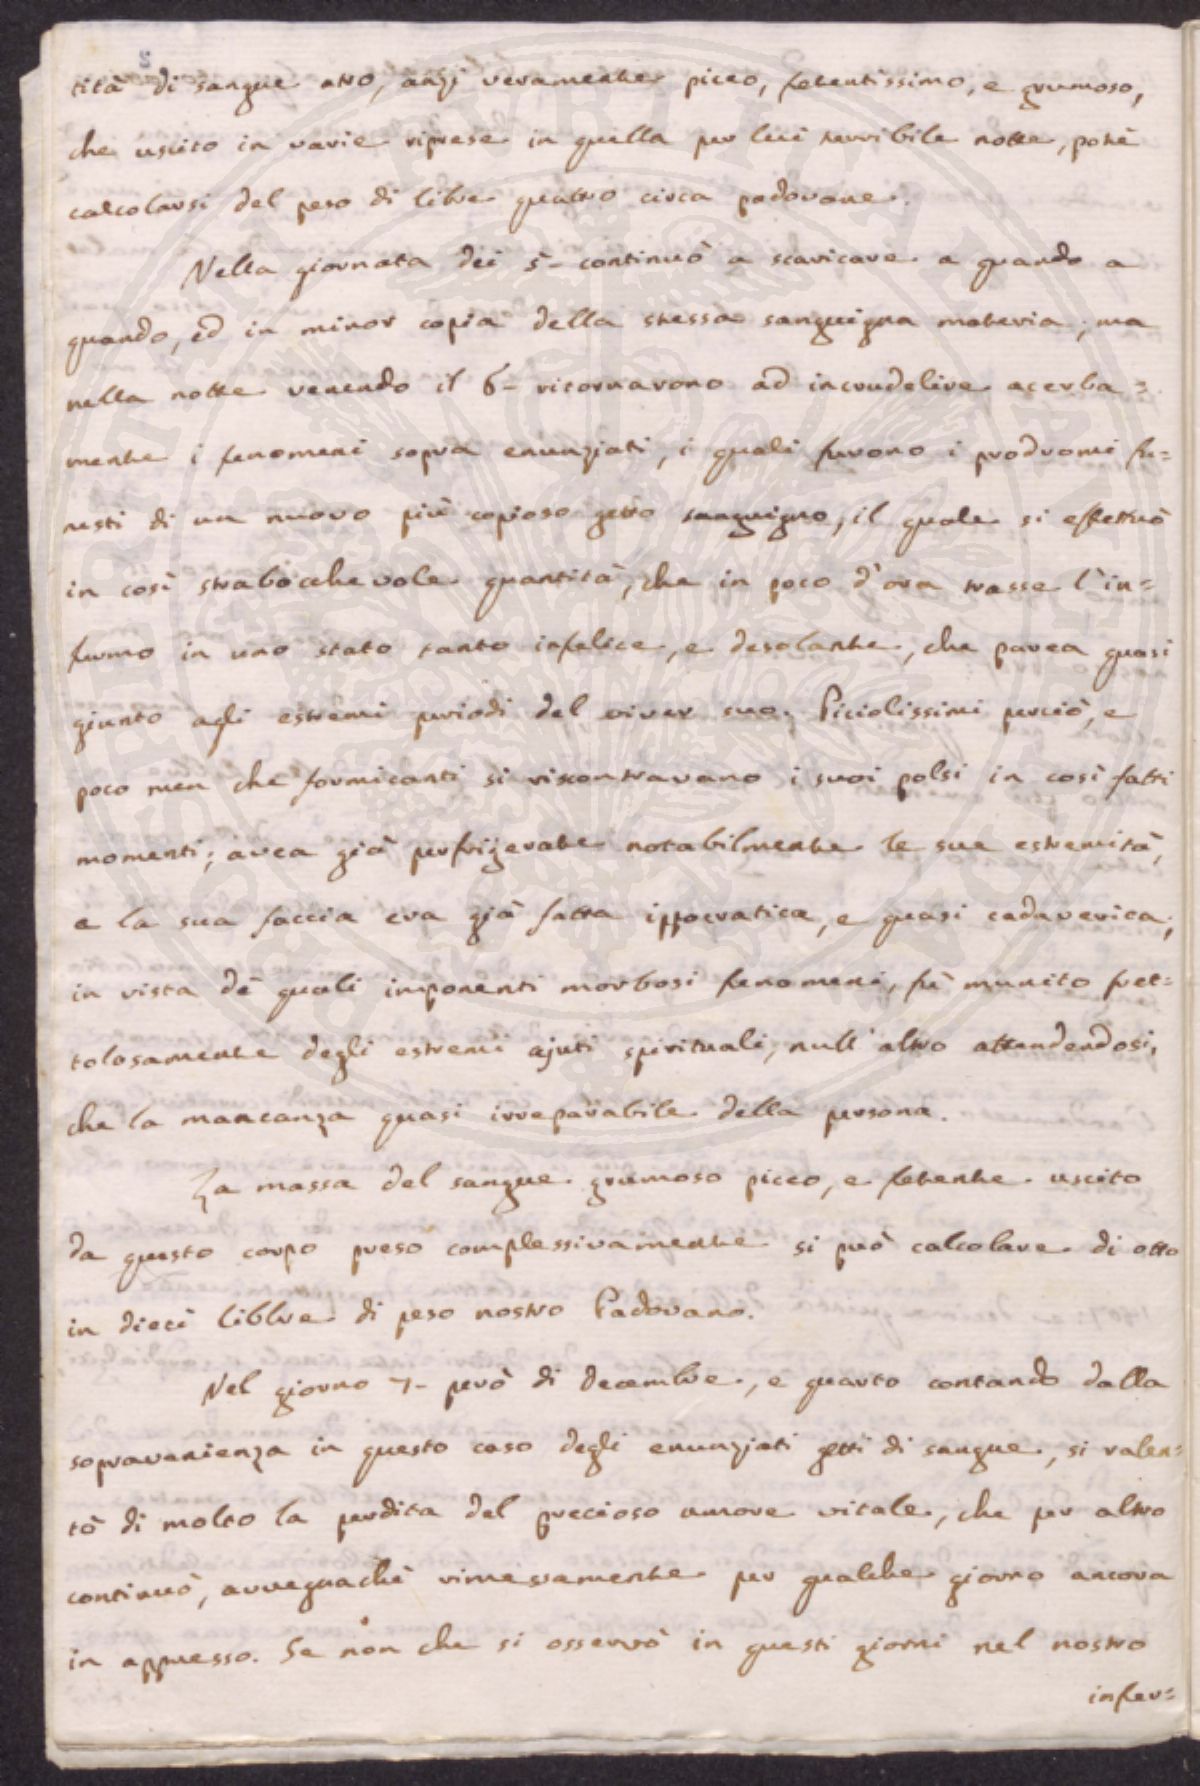 tità di sangue atro, anzi veramente piceo, fetentissimo, e grumoso,
che uscito in varie riprese in quella per lui terribile notte, potè
calcolarsi del peso di libre quattro circa padovane.
Nella giornata dei 5- continuò a scaricare a quando a
quando, ed in minor copia della stessa sanguigna materia; ma
nella notte venendo il 6- ritornarono ad incrudelire acerba=
mente i fenomeni sopra enunziati, i quali furono i prodromi fu=
nesti di un nuovo più copioso getto sanguigno, il quale si effettuò
in così strabocchevole quantità, che in poco d'ora trasse l'in=
fermo in uno stato tanto infelice, e desolante, che parea quasi
giunto agli estremi periodi del viver suo. Piciolissimi perciò, e
poco men che formicanti si riscontravano i suoi polsi in così fatti
momenti; avea già perfrigerate notabilmente le sue estremità,
e la sua faccia era già fatta ippocratica, e quasi cadaverica;
in vista de' quali imponenti morbosi fenomeni, fù munito fret=
tolosamente degli estremi ajuti spirituali, null'altro attendendosi,
che la mancanza quasi irreparabile della persona.
La massa del sangue grumoso piceo, e fetente uscito
da questo corpo preso complessivamente si può calcolare di otto
in dieci liblre di peso nostro Padovano.
Nel giorno 7- però di decembre, e quarto contando dalla
sopravenienza in questo caso degli enunziati getti di sangue, si ralen=
tò di molto la perdita del precioso umore vitale, che per altro
continuò, avvegnachè rimessamente per qualche giorno ancora
in appresso. Se non che si osservò in questi giorni nel nostro
infer=